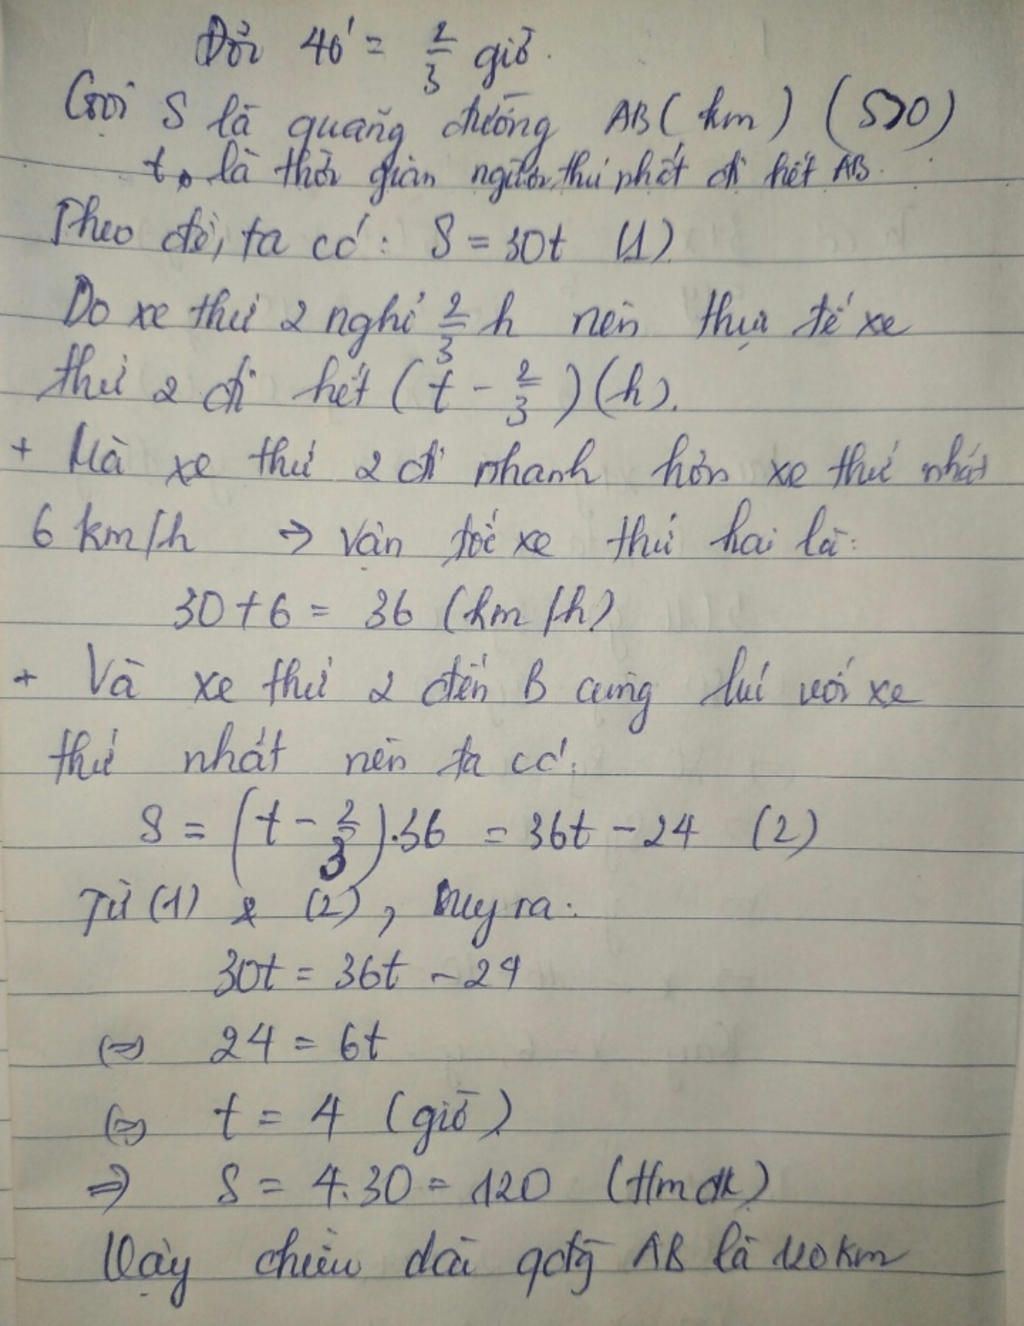 Đổi 40' = 2/3 giờ.
Gọi S là quãng đường AB (km) (S>0)
t, là thời gian người thứ nhất đi hết AB.
Theo đề, ta có: S = 30t (1)
Do xe thứ 2 nghỉ 2/3 h nên thực tế xe
thứ 2 đi hết (t - 2/3) (h).
+ Mà xe thứ 2 đi nhanh hơn xe thứ nhất
6 km/h => vận tốc xe thứ hai là:
30+6 = 36 (km/h)
+ Và xe thứ 2 đến B cùng lúc với xe
thứ nhất nên ta có:
S = (t - 2/3).36 = 36t - 24 (2)
Từ (1) & (2), suy ra:
30t = 36t - 24
(=) 24 = 6t
(=) t = 4 (giờ)
=> S = 4.30 = 120 (tmđk)
Vậy chiều dài qđg AB là 120km